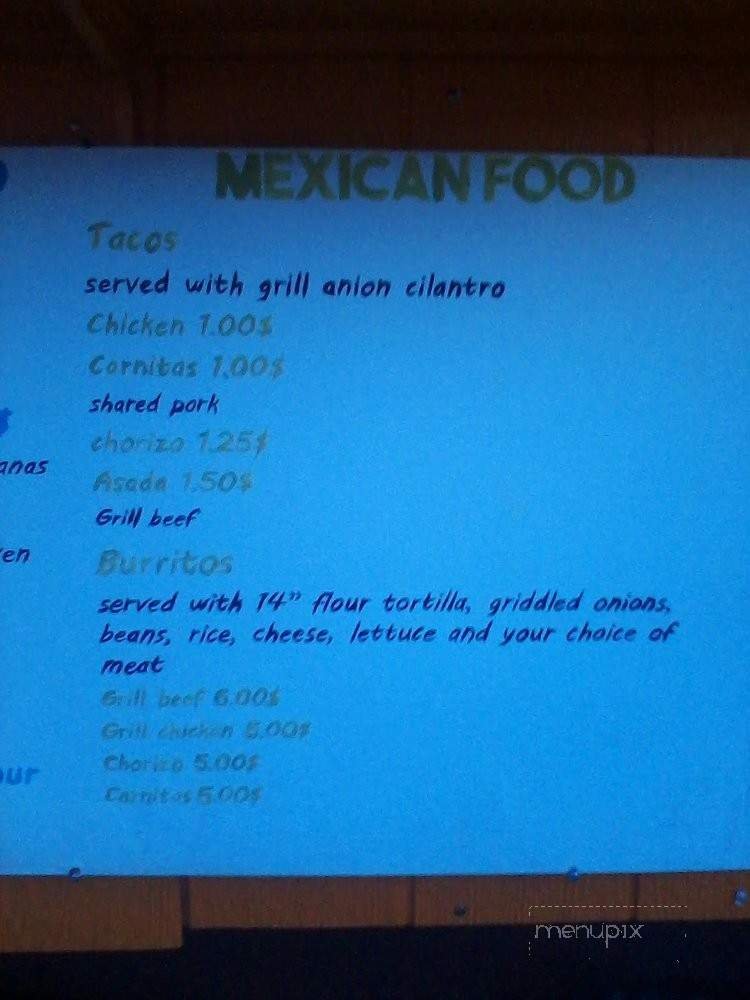 MEXICAN FOOD
Tacos
served with grill anion cilantro
Chicken 1.00$
Carnitas 1.00$
shared pork
chorizo 1.25$
Asada 1.50$
Grill beef
Burritos
served with 14" flour tortilla, griddled onions,
beans, rice, cheese, lettuce and your choice of
meat
Grill beef 6.00$
Grill chicken 5.00$
Chorizo 5.00$
Carnitas 5.00$
anas
en
our
menupix